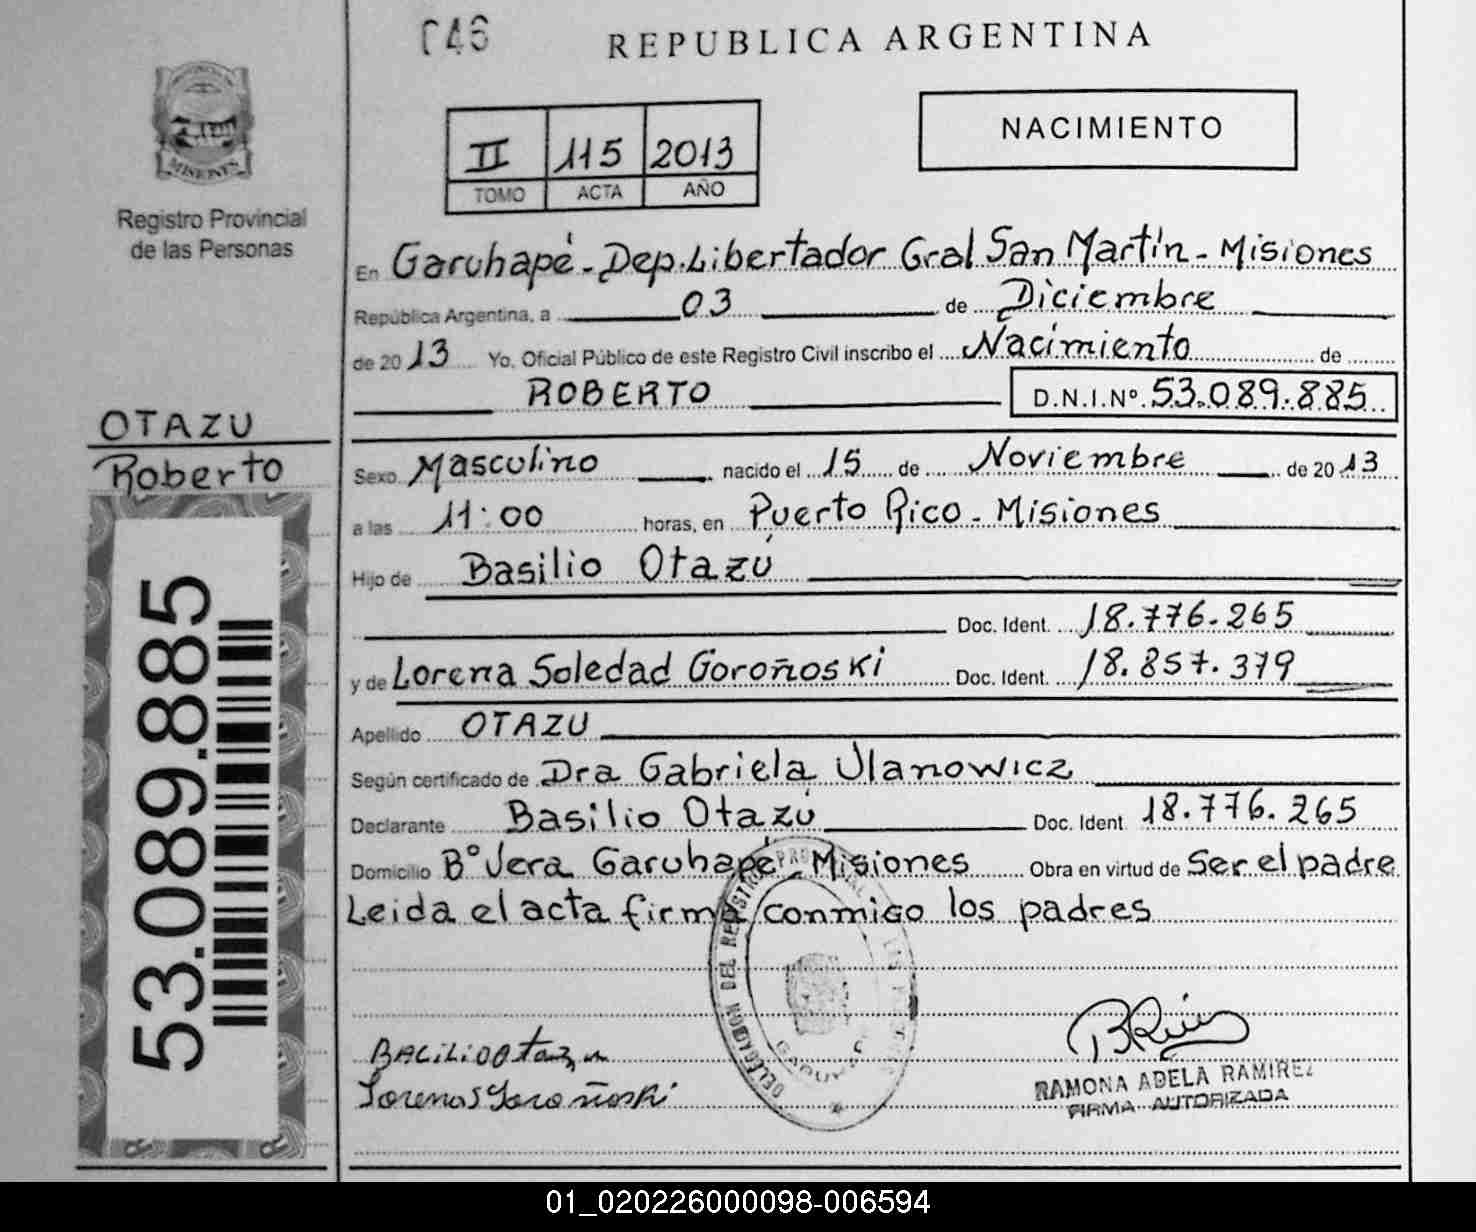 046
REPUBLICA ARGENTINA
MISIONES
Registro Provincial
de las Personas
II 115 2013
TOMO ACTA AÑO
NACIMIENTO
En Garuhapé - Dep. Libertador Gral San Martín - Misiones
República Argentina, a 03 de Diciembre
de 2013 Yo, Oficial Público de este Registro Civil inscribo el Nacimiento de
ROBERTO D.N.I.Nº 53.089.885
OTAZU
Roberto
53.089.885
Sexo Masculino nacido el 15 de Noviembre de 2013
a las 11:00 horas, en Puerto Rico - Misiones
Hijo de Basilio Otazú
Doc. Ident. 18.776.265
y de Lorena Soledad Goroñoski Doc. Ident. 18.857.379
Apellido OTAZU
Según certificado de Dra Gabriela Ulanowicz
Declarante Basilio Otazú Doc. Ident 18.776.265
Domicilio Bº Vera Garuhapé - Misiones Obra en virtud de Ser el padre
Leida el acta firma conmigo los padres
DELEGACION DEL REGISTRO
GARUHAPE
BACilio Otazu
Lorena S Goroñoski
RAMONA ADELA RAMIREZ
FIRMA AUTORIZADA
01_020226000098-006594